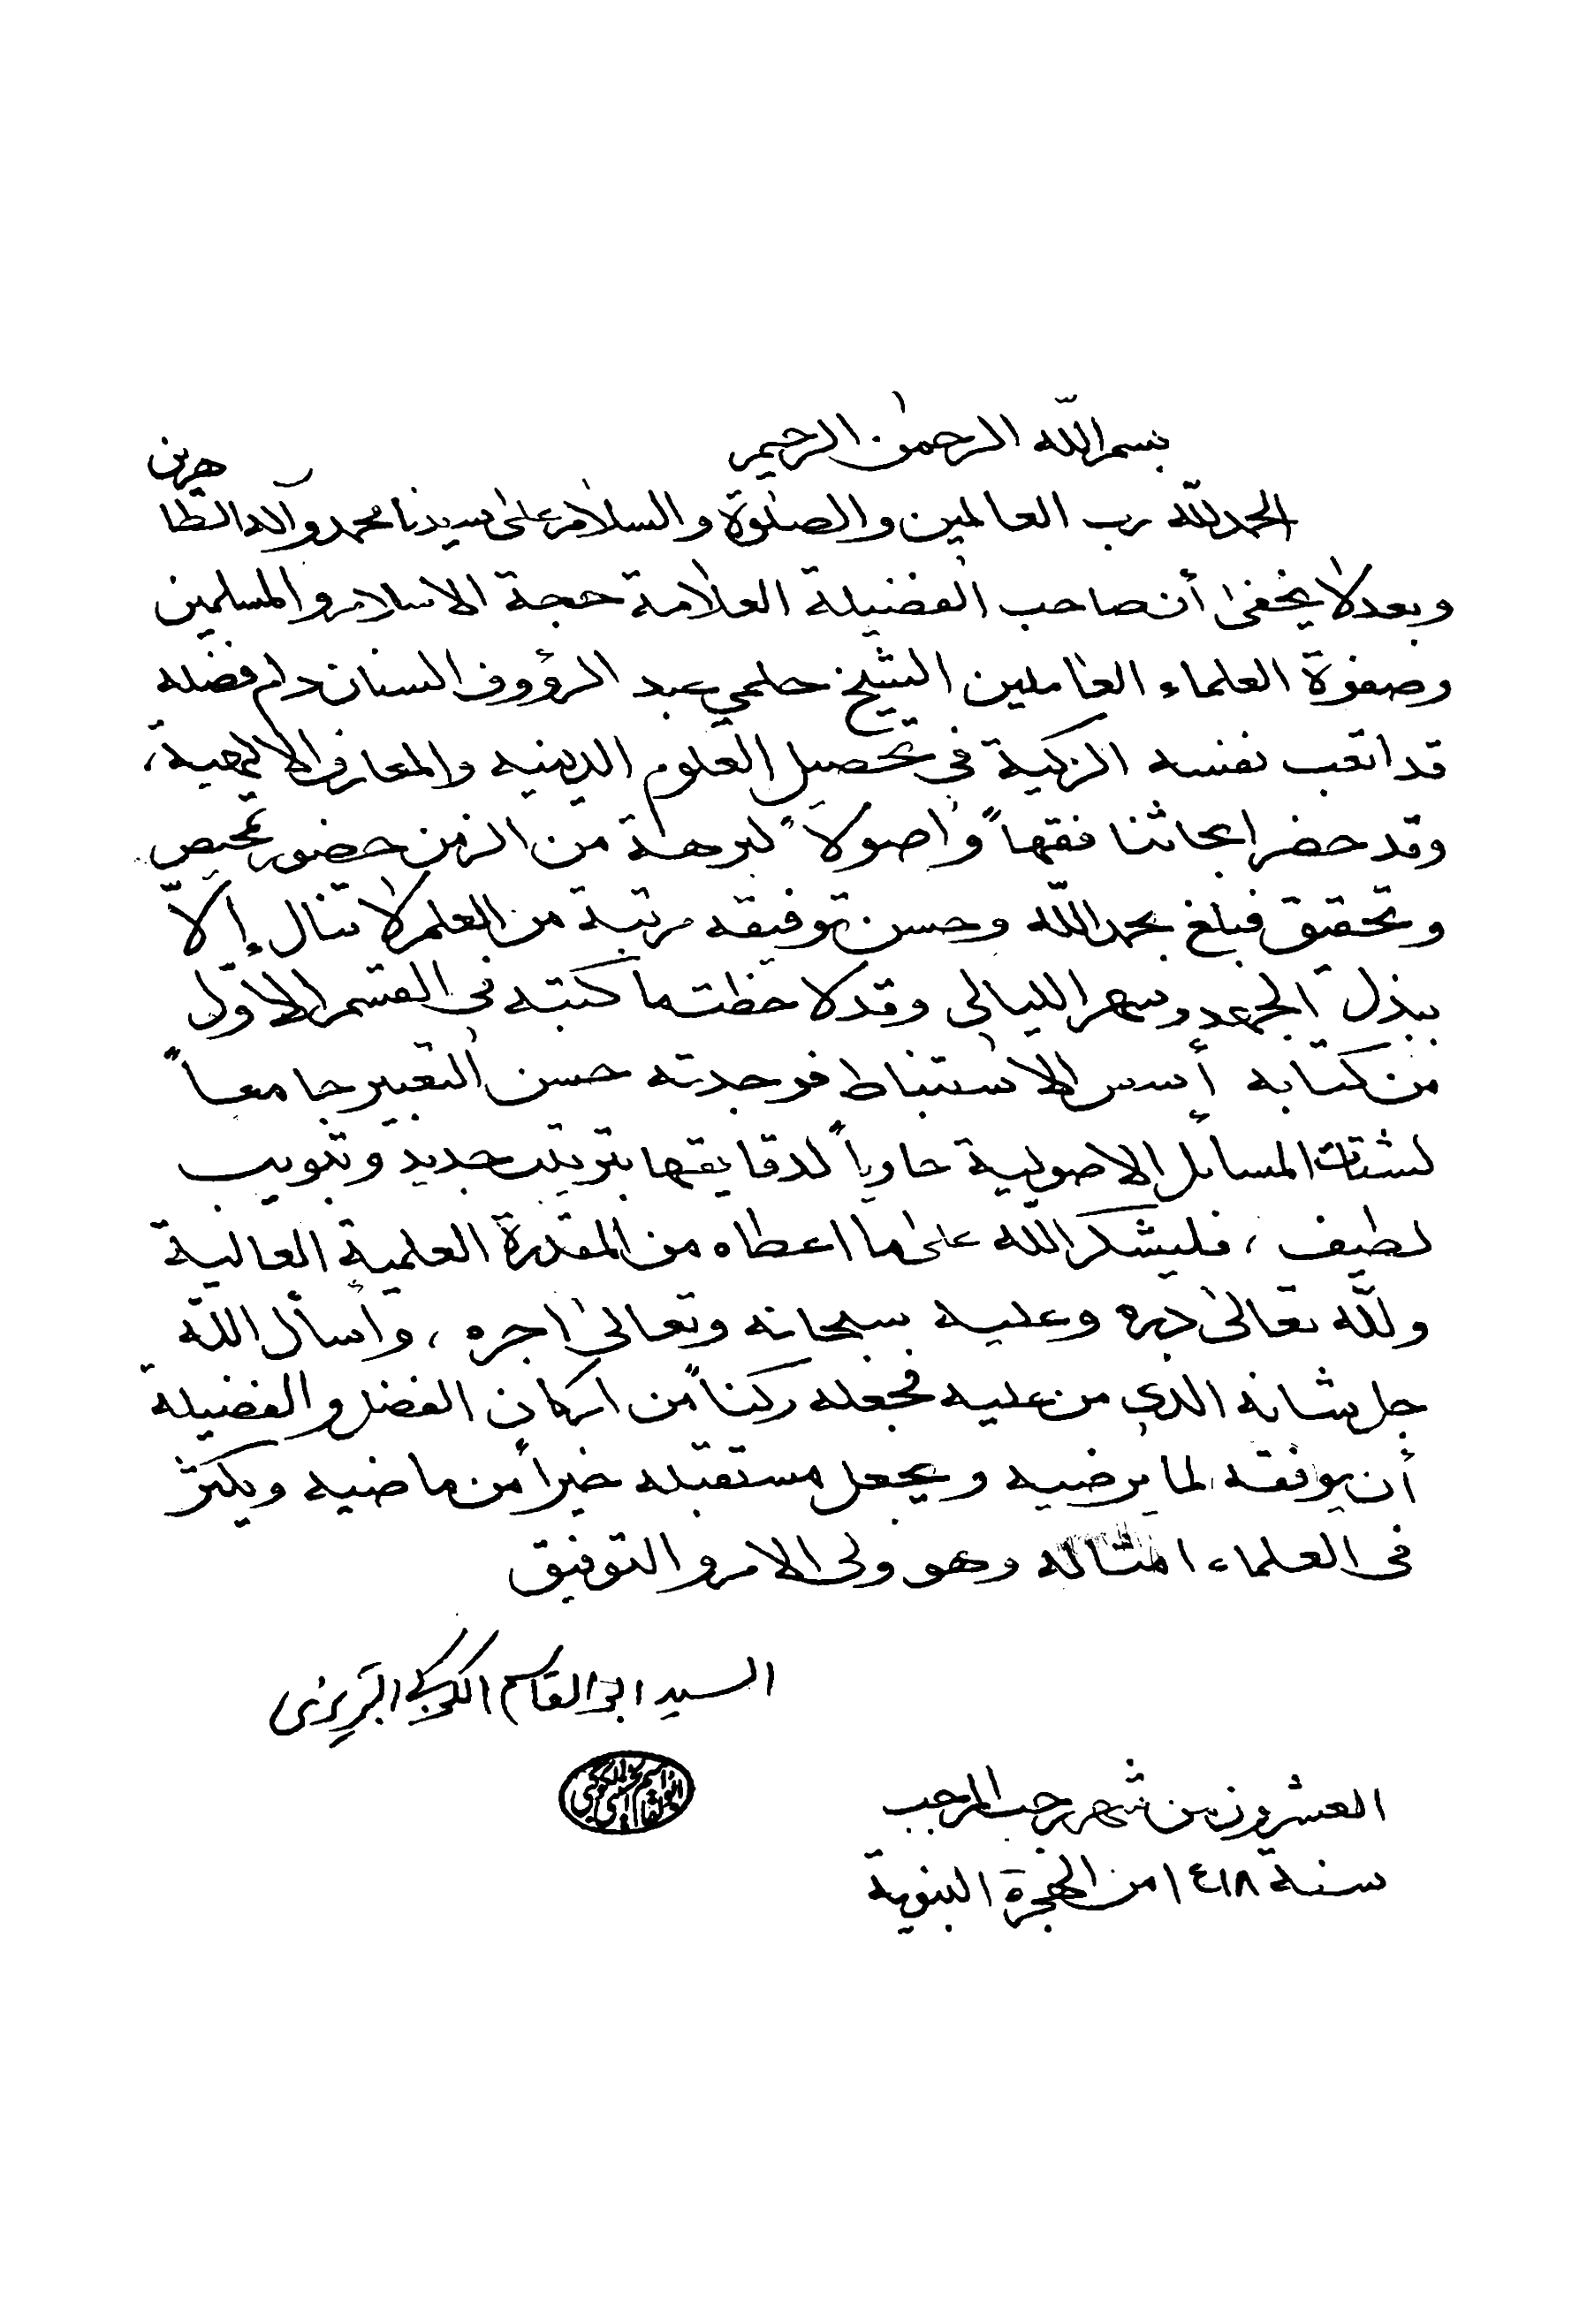 بسم اللّٰه الرحمٰن الرحيم
الحمد للّٰه رب العالمين والصلوٰة والسلام علىٰ سيدنا محمد وآله الطاهرين
وبعد لا يخفىٰ أن صاحب الفضيلة العلامة حجة الاسلام والمسلمين
وصفوة العلماء العاملين الشيخ حلمي عبد الرؤوف السنان دام فضله
قد اتعب نفسه الزكية في تحصيل العلوم الدينيه والمعارف الالهية،
وقد حضر ابحاثنا فقهاً واصولاً لبرهة من الزمن حضور تمحيص
وتحقيق فبلغ بحمد اللّٰه وحسن توفيقه مرتبة من العلم لا تنال إلاّ
ببذل الجهد وسهر الليالى وقد لاحظت ما كتبه فى القسم الاوّل
من كتابه أسس الاستنباط فوجدته حسن التعبير جامعاً
لشتات المسائل الاصولية حاوياً لدقايقها بترتيب جديد وتبويب
لطيف، فليشكر الله علىٰ ما اعطاه من المقدرة العلمية العالية
وللّٰه تعالىٰ دره وعليه سبحانه وتعالىٰ اجره، وأسأل اللّٰه
جل شانه الذي من عليه فجعله ركناً من اركان الفضل والفضيلة
أن يوفقه لما يرضيه ويجعل مستقبله خيراً من ماضيه ويكثر
فى العلماء امثاله وهو ولى الامر والتوفيق
السيد ابو القاسم الكوكبي التبريزى
العشرون من شهر رجب المرجب
سنة ١٤١٨ من الهجرة النبوية